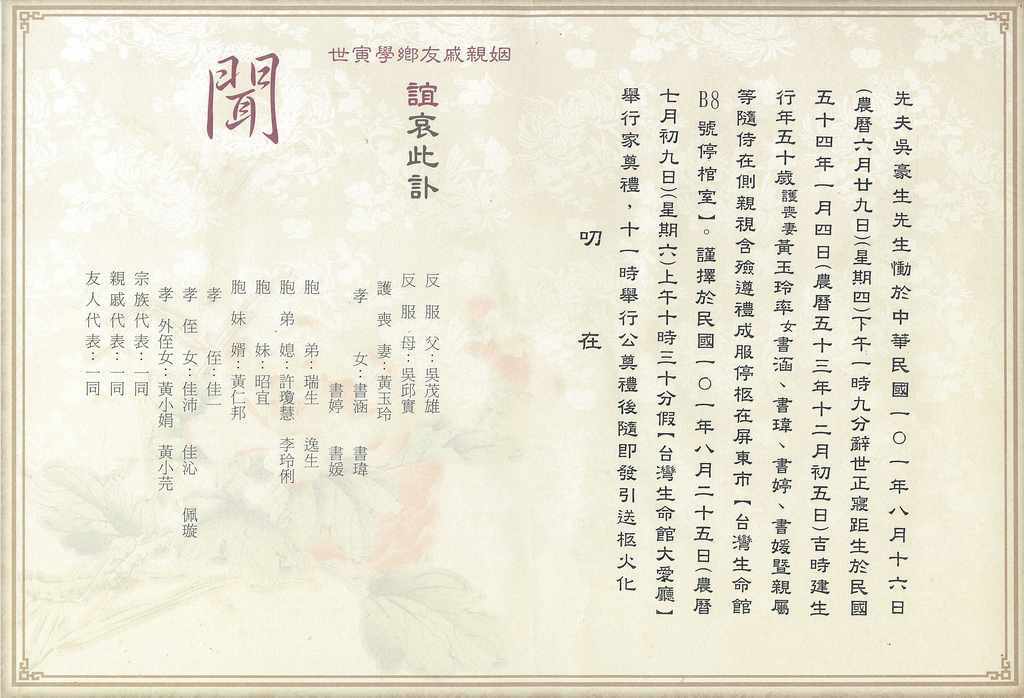 先夫吳豪生先生慟於中華民國一○一年八月十六日
(農曆六月廿九日)(星期四)下午一時九分辭世正寢距生於民國
五十四年一月四日(農曆五十三年十二月初五日)吉時建生
行年五十歲護喪妻黃玉玲率女書涵、書瑋、書婷、書媛暨親屬
等隨侍在側親視含殮遵禮成服停柩在屏東市【台灣生命館
B8號停棺室】。謹擇於民國一○一年八月二十五日(農曆
七月初九日)(星期六)上午十時三十分假【台灣生命館大愛廳】
舉行家奠禮,十一時舉行公奠禮後隨即發引送柩火化
叨 在
世寅學鄉友戚親姻
誼哀此訃
聞
反服父:吳茂雄
反服母:吳邱實
護喪妻:黃玉玲
孝女:書涵 書瑋
書婷 書媛
胞弟:瑞生 逸生
胞弟媳:許瓊慧 李玲俐
胞妹:昭宜
胞妹婿:黃仁邦
孝侄:佳一
孝侄女:佳沛 佳沁 佩璇
孝外侄女:黃小娟 黃小芫
宗族代表:一同
親戚代表:一同
友人代表:一同